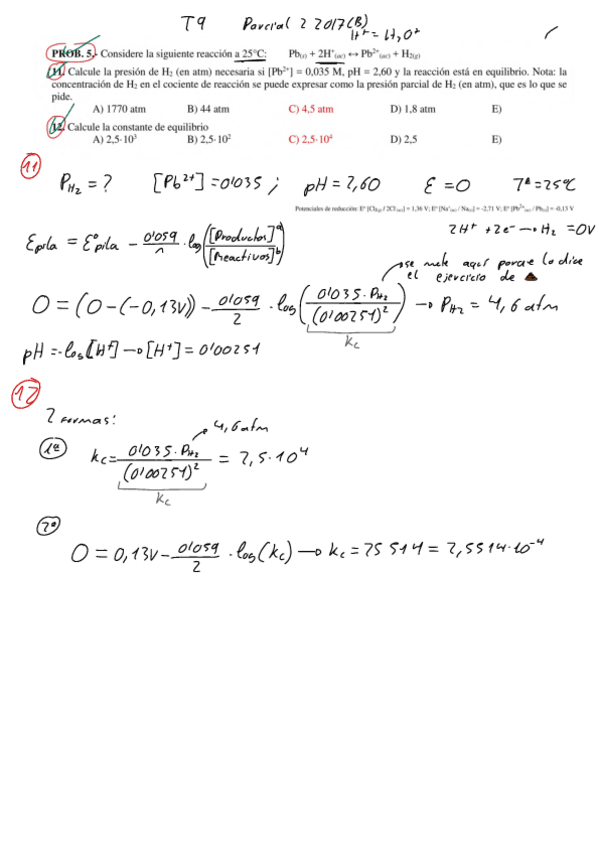 T9 Parcial 2 2017(B)
H⁺ = H₃O⁺
PROB. 5.- Considere la siguiente reacción a 25°C: Pb(s) + 2H⁺(ac) ↔ Pb²⁺(ac) + H₂(g)
11. Calcule la presión de H₂ (en atm) necesaria si [Pb²⁺] = 0,035 M, pH = 2,60 y la reacción está en equilibrio. Nota: la
concentración de H₂ en el cociente de reacción se puede expresar como la presión parcial de H₂ (en atm), que es lo que se
pide.
A) 1770 atm B) 44 atm C) 4,5 atm D) 1,8 atm E)
12. Calcule la constante de equilibrio
A) 2,5·10³ B) 2,5·10² C) 2,5·10⁴ D) 2,5 E)
11
P_H₂ = ? [Pb²⁺] = 0'035 ; pH = 2,60 ε = 0 Tª = 25°C
Potenciales de reducción: E° [Cl₂(g) / 2Cl⁻(ac)] = 1,36 V; E° [Na⁺(ac) / Na(s)] = -2,71 V; E° [Pb²⁺(ac) / Pb(s)] = -0,13 V
2H⁺ + 2e⁻ → H₂ = 0V
εpila = ε°pila − 0'059/n · log([Productos]ᵃ/[Reactivos]ᵇ)
→ se mete aquí porque lo dice
el ejercicio de
0 = (0−(−0,13V)) − 0'059/2 · log(0'035·P_H₂/(0'00251)²) → P_H₂ = 4,6 atm
kc
pH = -log[H⁺] → [H⁺] = 0'00251
12
2 formas:
→ 4,6 atm
1ª kc = 0'035·P_H₂/(0'00251)² = 2,5·10⁴
kc
2ª
0 = 0,13V − 0'059/2 · log(kc) → kc = 25 514 = 2,5514·10⁻⁴